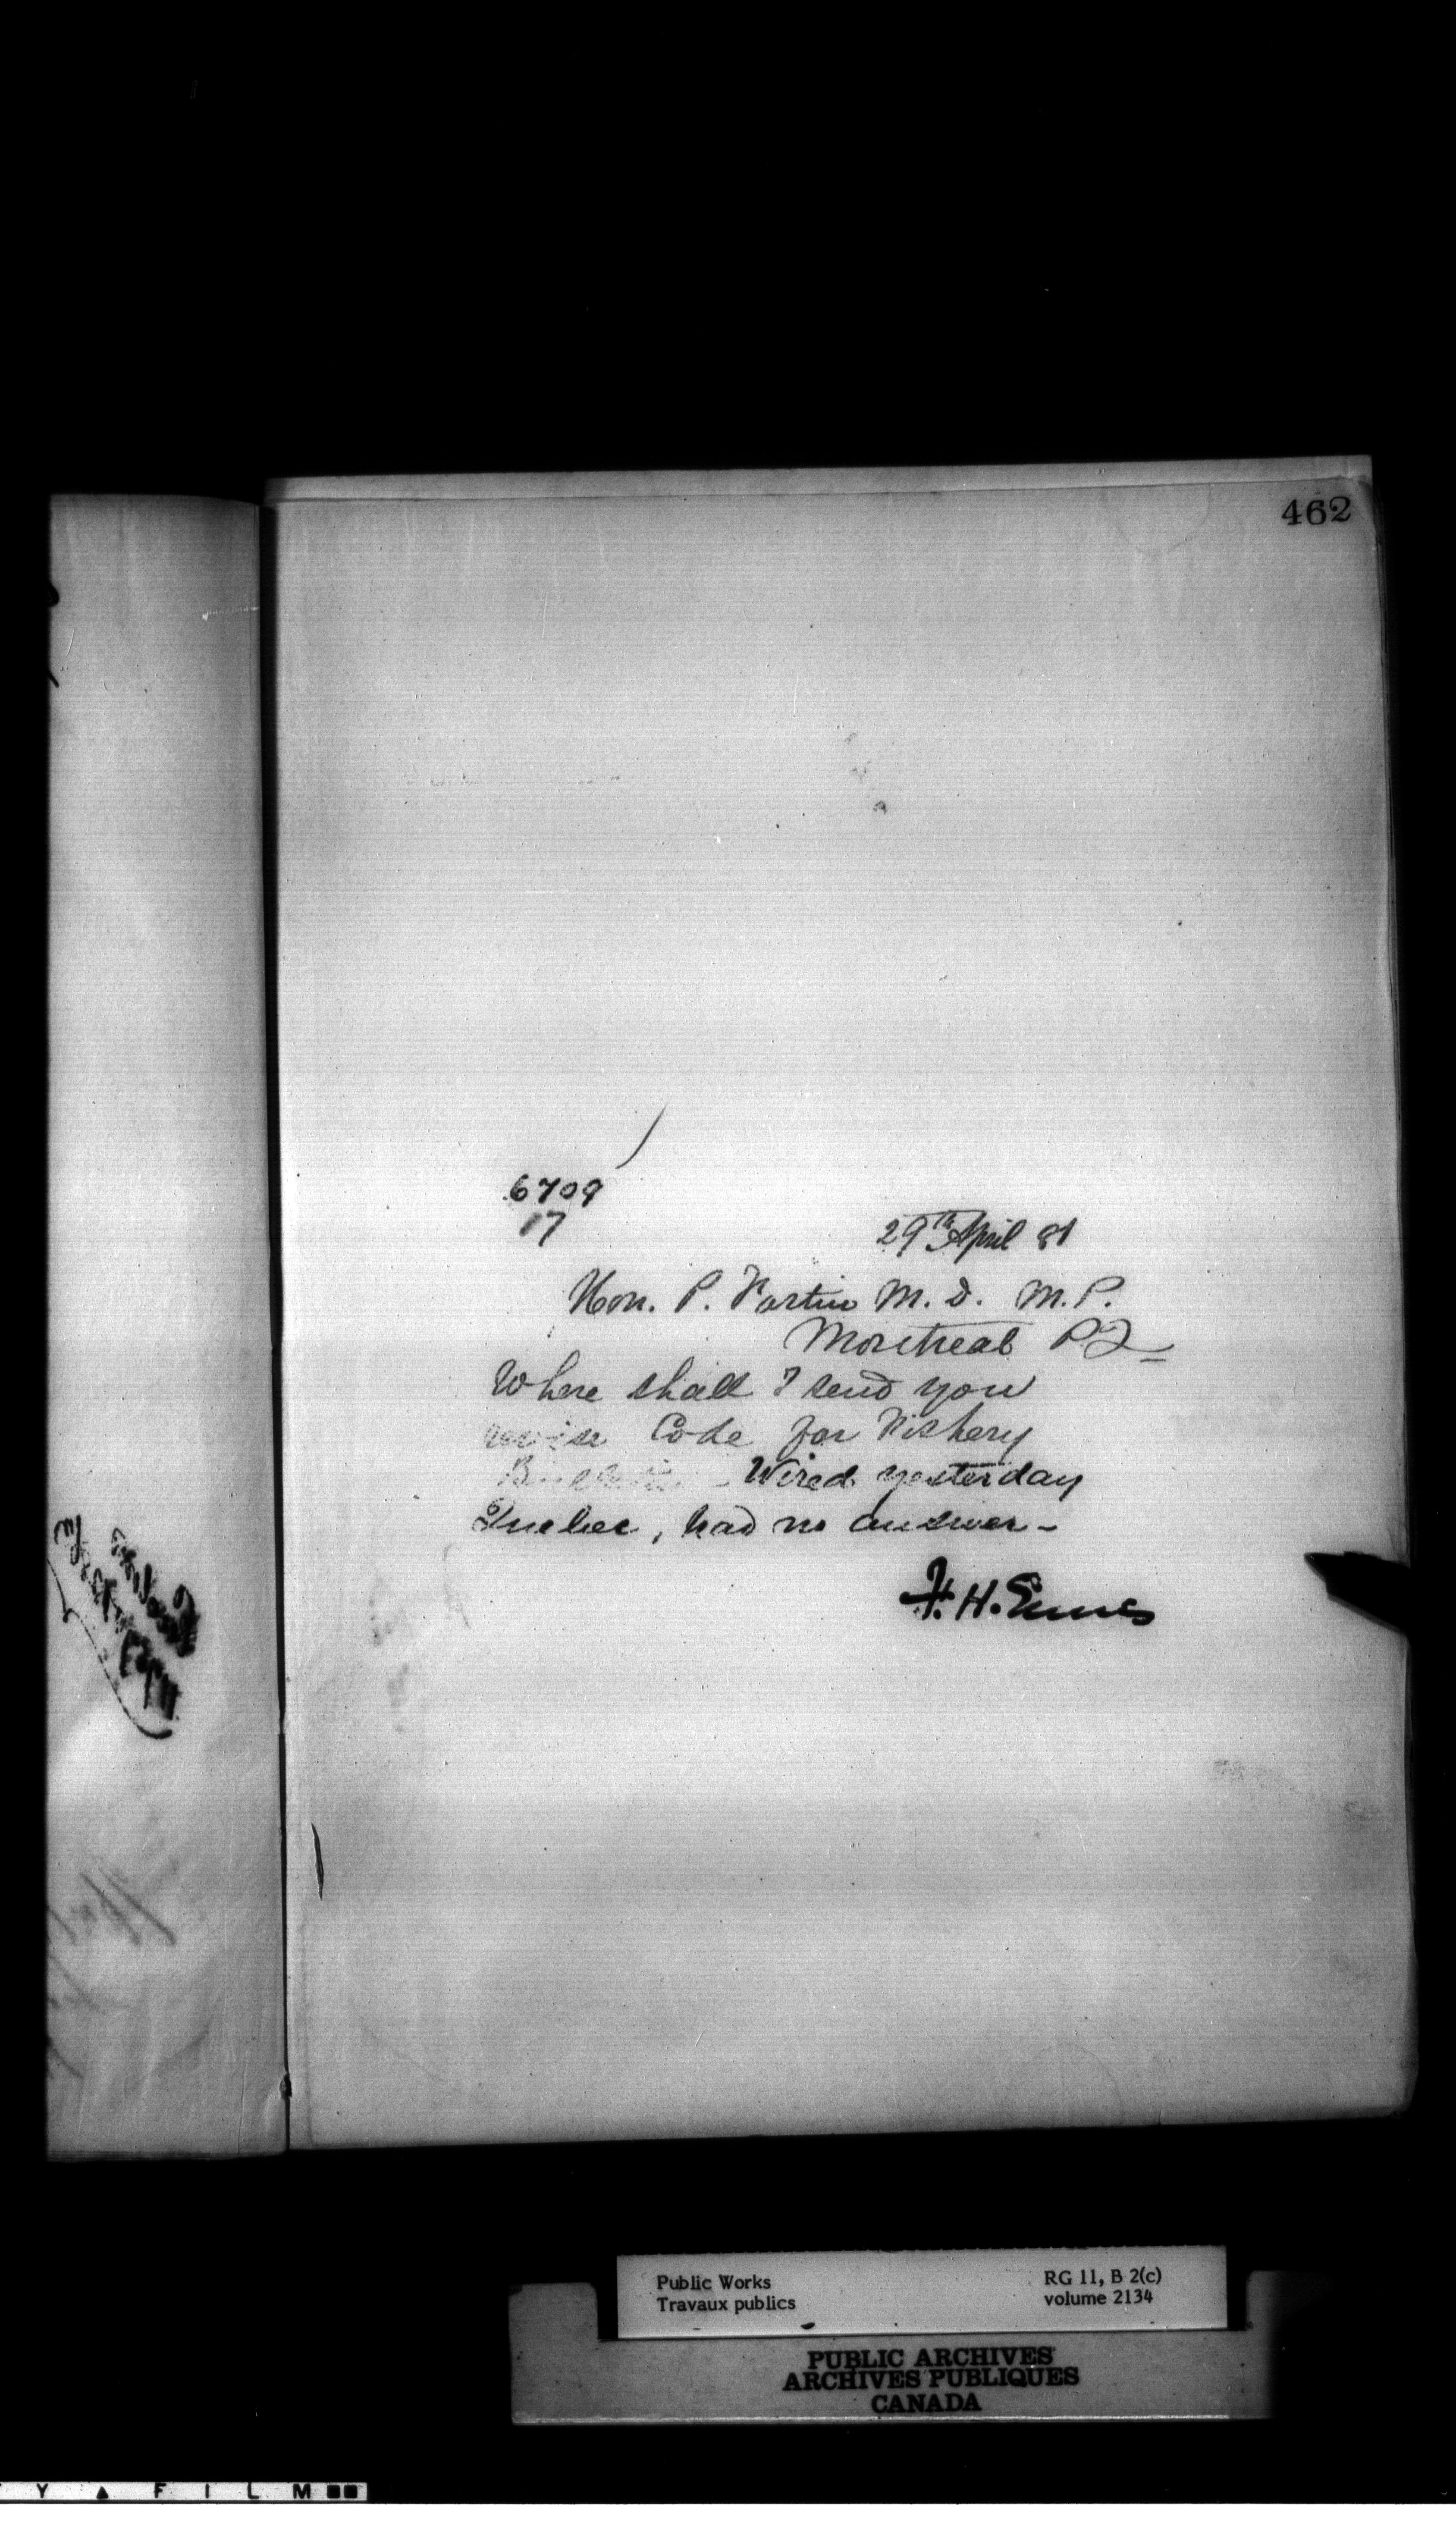 462
6709
17
29th April 81
Hon. P. Fortin M.D. M.P.
Montreal P.Q
Where shall I send you
revise Code for Fishery
Wired yesterday
Quebec, had no answer -
F. H. Ennis
Public Works
Travaux publics
RG 11, B 2(c)
volume 2134
PUBLIC ARCHIVES
ARCHIVES PUBLIQUES
CANADA
Y ▲ F I L M